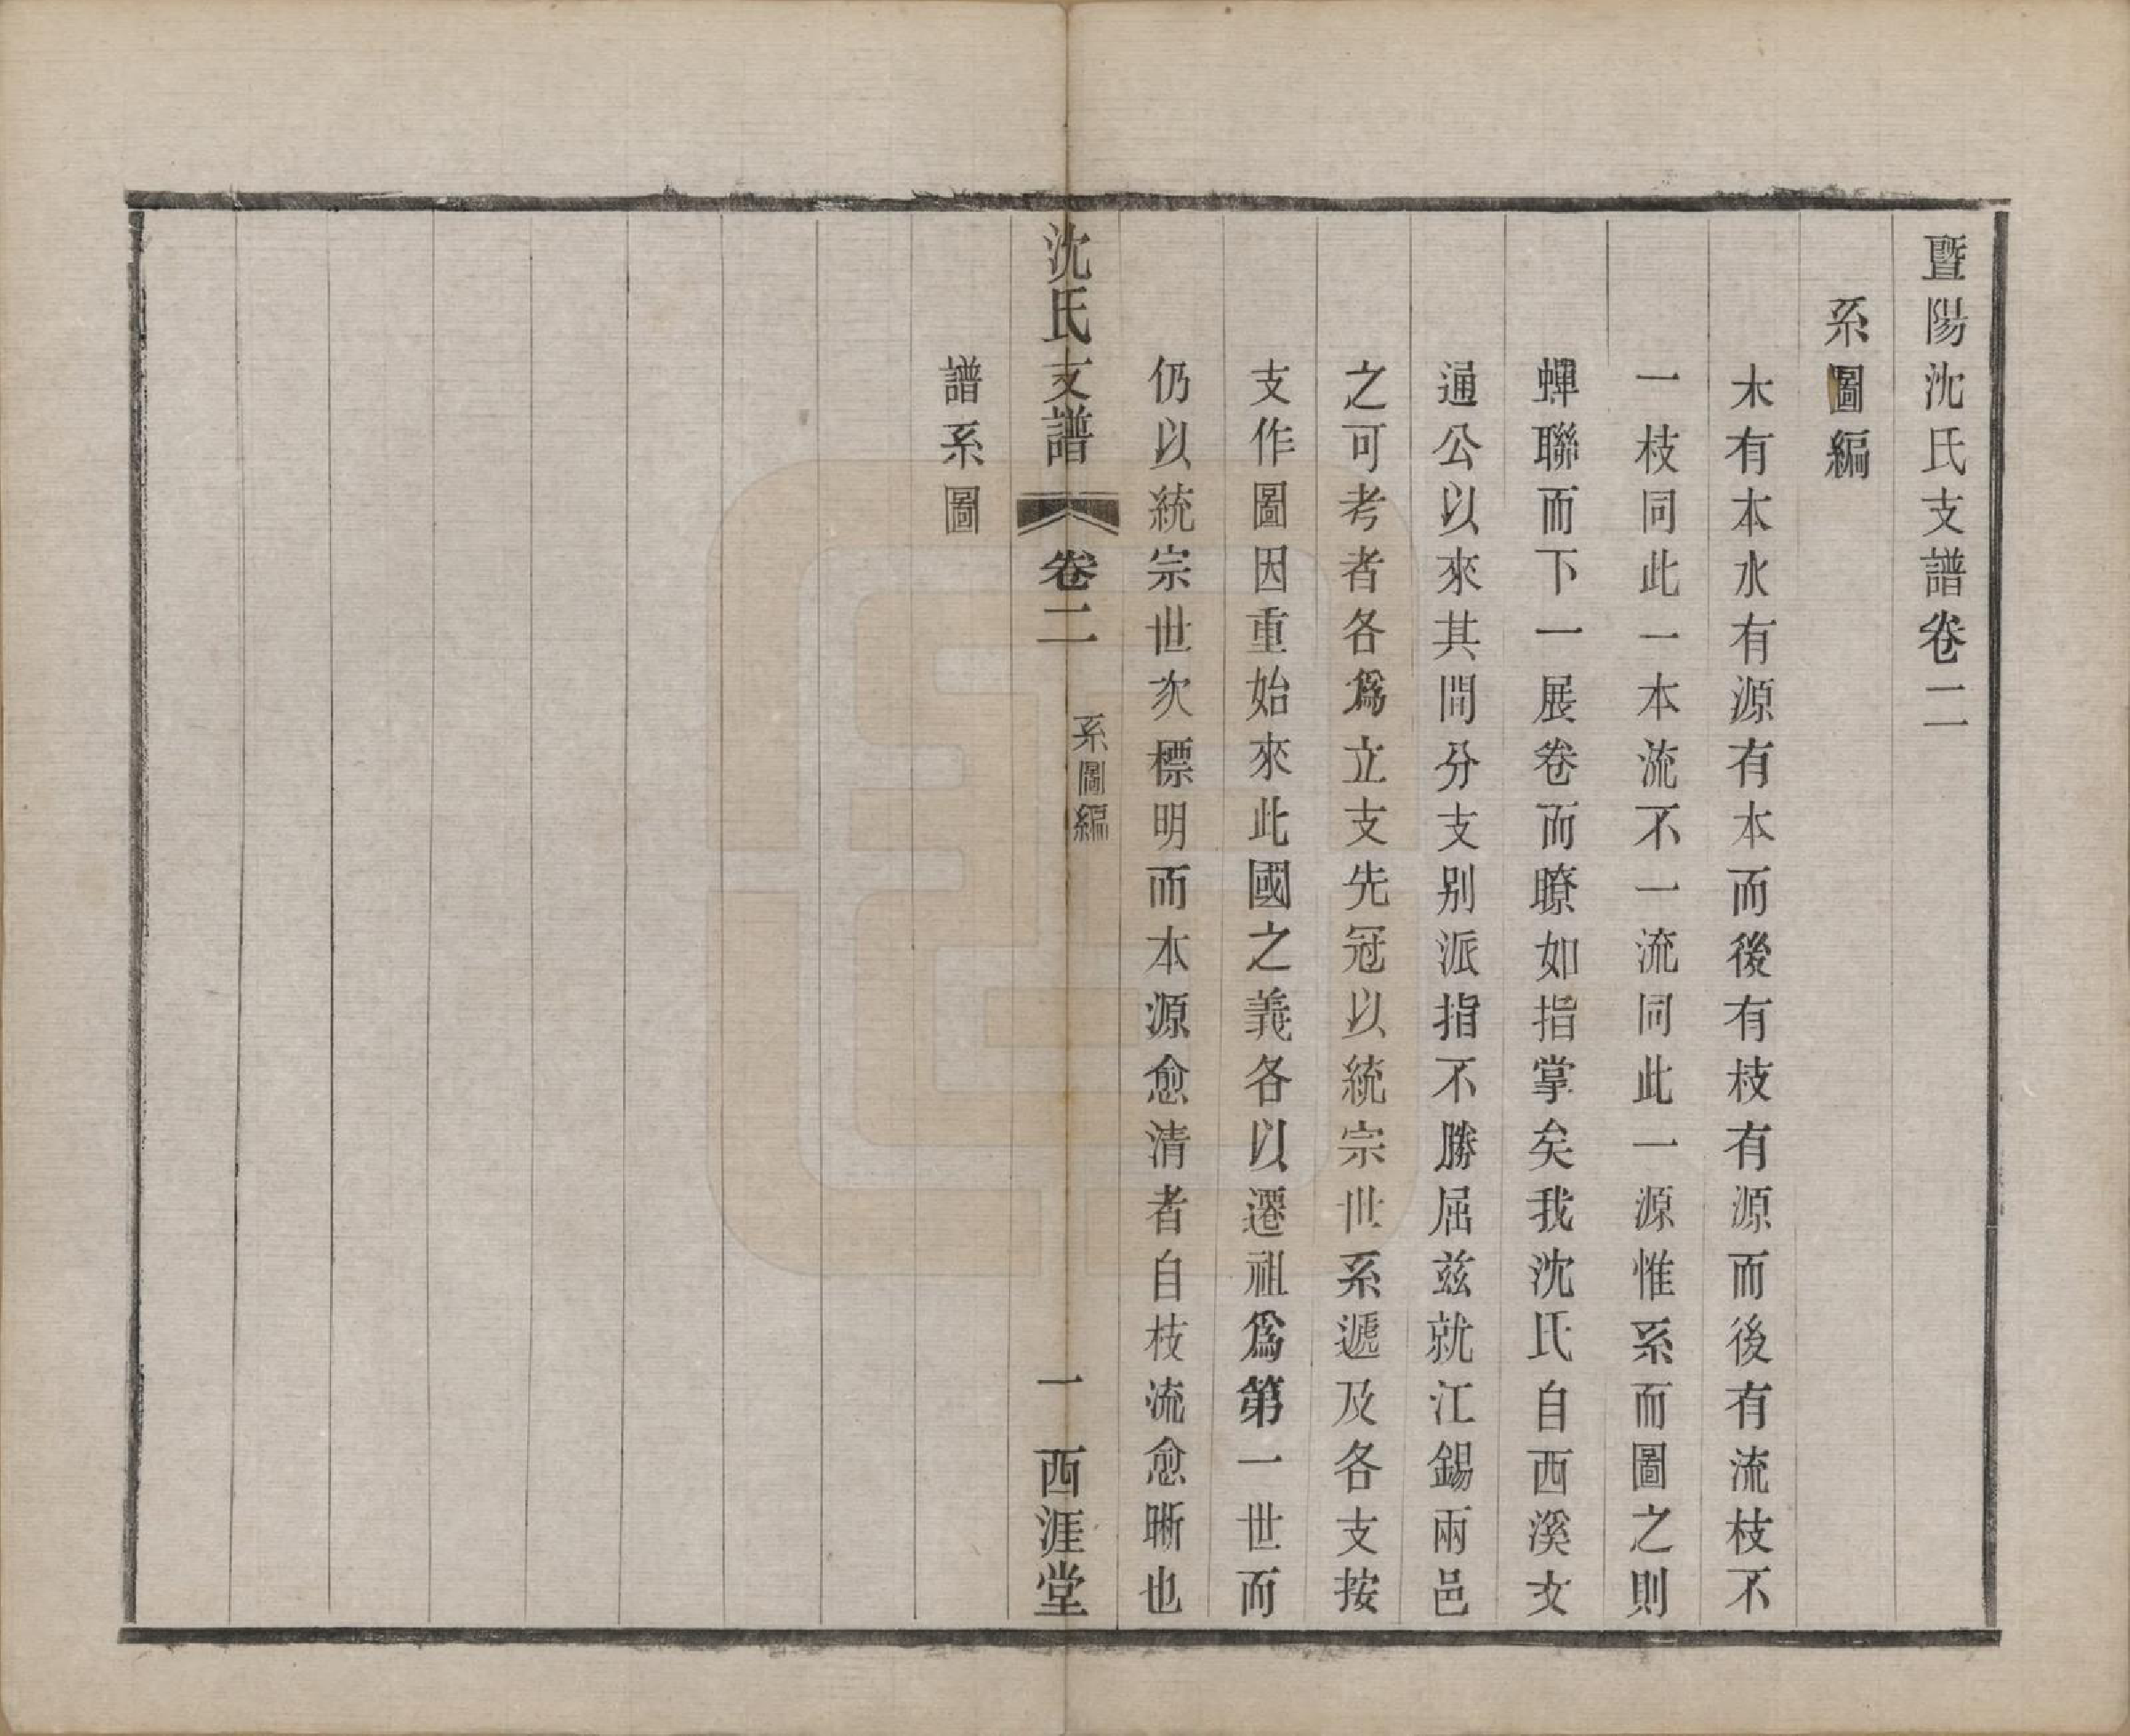 暨陽沈氏支譜卷二
系圖編
木有本水有源有本而後有枝有源而後有流枝不
一枝同此一本流不一流同此一源惟系而圖之則
蟬聯而下一展卷而瞭如指掌矣我沈氏自西溪文
通公以來其間分支别派指不勝屈兹就江錫兩邑
之可考者各爲立支先冠以統宗世系遞及各支按
支作圖因重始來此國之義各以遷祖爲第一世而
仍以統宗世次標明而本源愈清者自枝流愈晣也
沈氏支譜 卷二 系圖編 一 西涯堂
譜系圖